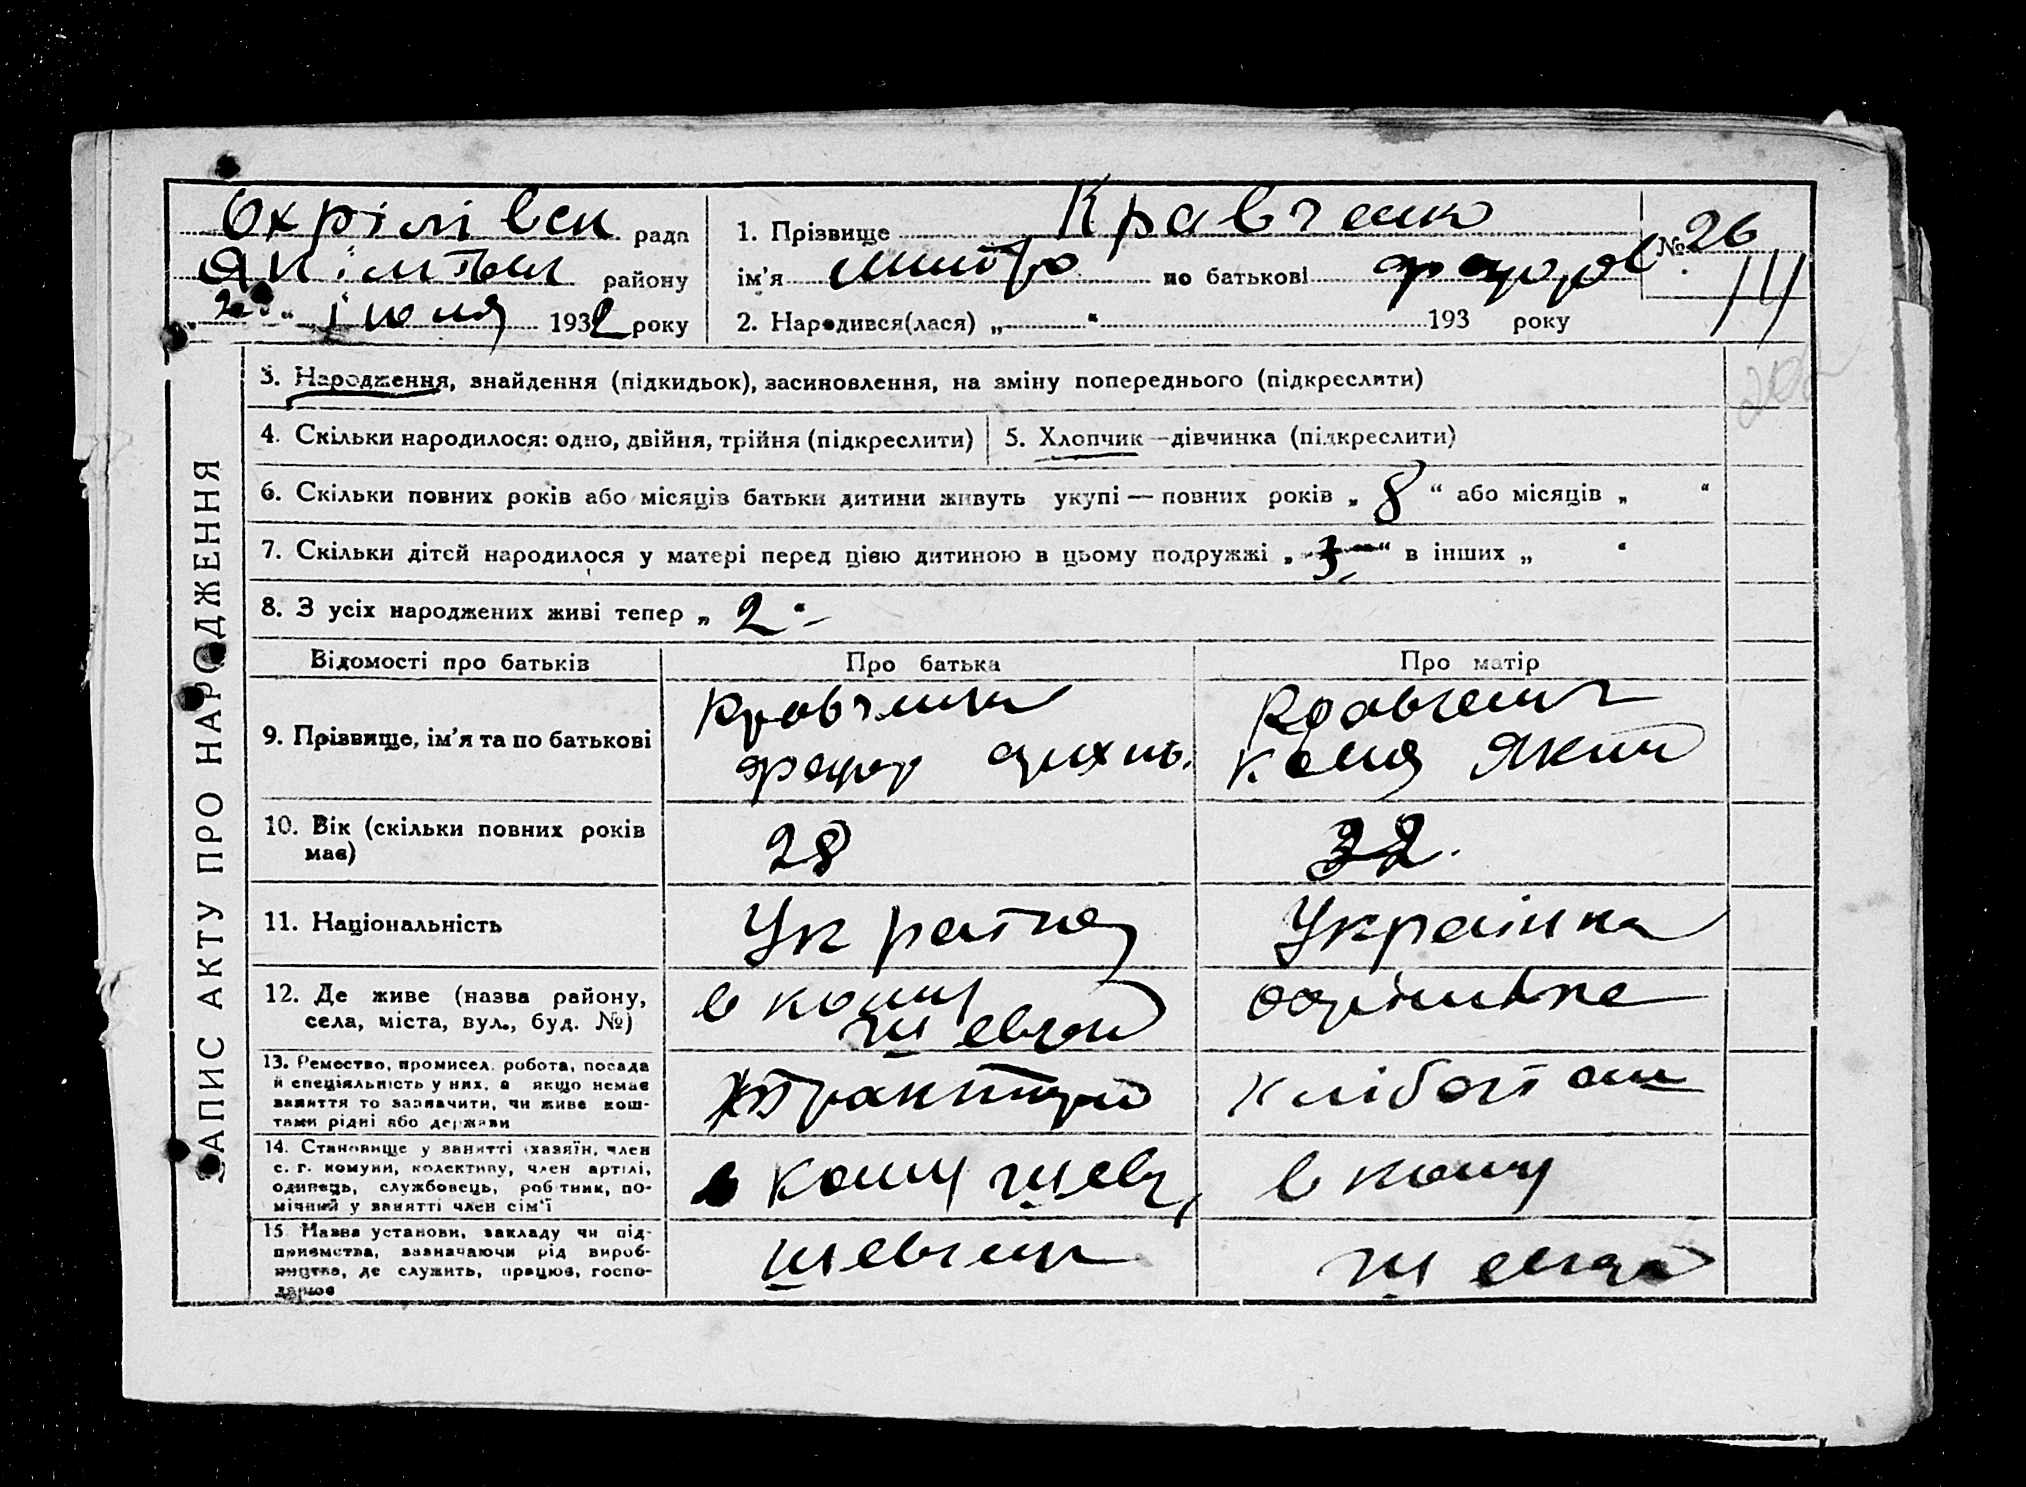 Охрімівсн рада
Якімівсн району
"23" іюля 1932 року
1. Прізвище Кравченко
ім'я Митро по батькові Федоров
2. Народився(лася) „ “ 193 року
№ 26
ЗАПИС АКТУ ПРО НАРОДЖЕННЯ
3. Народження, знайдення (підкидьок), засиновлення, на зміну попереднього (підкреслити)
4. Скільки народилося: одно, двійня, трійня (підкреслити)
5. Хлопчик—дівчинка (підкреслити)
6. Скільки повних років або місяців батьки дитини живуть укупі — повних років „ 8 “ або місяців „ “
7. Скільки дітей народилося у матері перед цією дитиною в цьому подружжі „ 3 “ в інших „ “
8. З усіх народжених живі тепер „ 2 “
Відомості про батьків
Про батька
Про матір
9. Прізвище, ім'я та по батькові
Кравченко
Федор
Кравченко
Яким
10. Вік (скільки повних років
має)
28
32
11. Національність
Украінец
Украінка
12. Де живе (назва району,
села, міста, вул., буд. №)
в кому
Шевчен
13. Ремество, промисел, робота, посада
й спеціяльність у них, а якщо немає
заняття то зазначити, чи живе кош-
тами рідні або держави
трактори
хлібороб
14. Становище у занятті (хазяїн, член
с. г. комуни, колективу, член артілі,
одинець, службовець, робітник, по-
мічний у занятті член сім'ї
в кому Шевч
в кому
15 Назва установи, закладу чи під-
приємства, зазначаючи рід вироб-
ництва, де служить, працює, госпо-
дарює
Шевчен
Шевчен